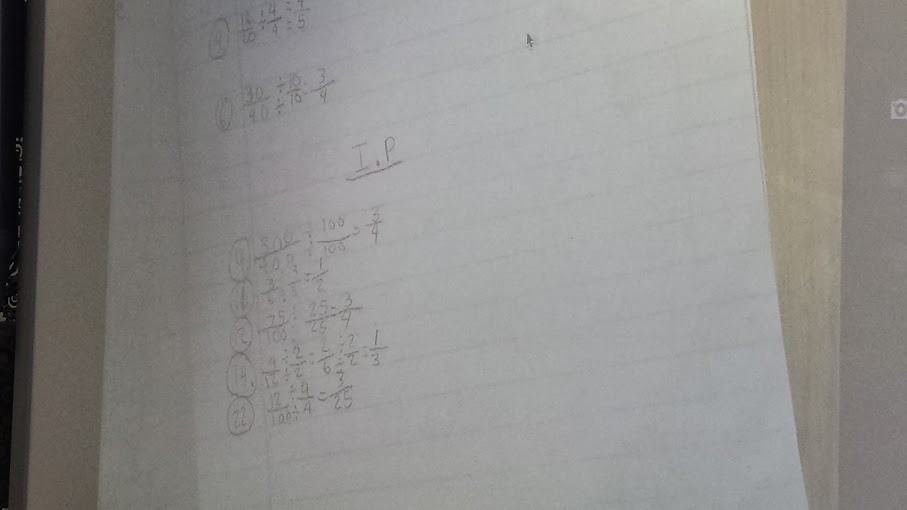 ④ 16/20 ÷ 4/4 = 4/5
÷ 10/10 = 3/4
I.P
300/400 ÷ 100/100 = 3/4
3/6 ÷ 3/3 = 1/2
75/100 ÷ 25/25 = 3/4
14. 4/12 ÷ 2/2 = 2/6 ÷ 2/2 = 1/3
22 12/100 ÷ 4/4 = 3/25